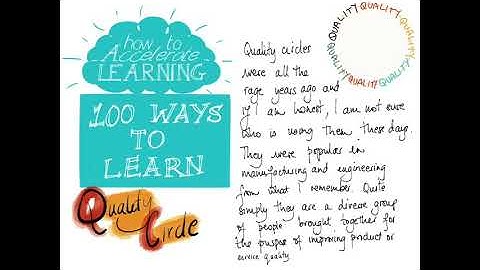 how to
Accelerate
LEARNING
100 WAYS
TO
LEARN
Quality
Circle
QUALITY QUALITY QUALITY QUALITY QUALITY QUALITY
Quality circles
were all the
rage years ago and
if I am honest, I am not sure
who is using them these days.
They were popular in
manufacturing and engineering
from what I remember. Quite
simply they are a diverse group
of people brought together for
the purpose of improving product or
service quality